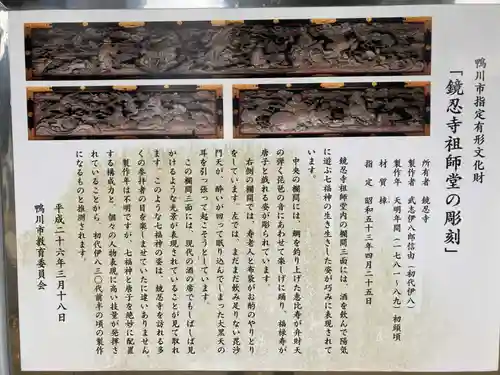 鴨川市指定有形文化財
「鏡忍寺祖師堂の彫刻」
所有者 鏡忍寺
製作者 武志伊八郎信由(初代伊八)
製作年 天明年間(一七八一〜八九)初頭頃
材質 欅
指定 昭和五十三年四月二十五日
鏡忍寺祖師堂内の欄間三面には、酒を飲んで陽気
に遊ぶ七福神の生き生きした姿が巧みに表現されて
います。
中央の欄間には、鯛を釣り上げた恵比寿が弁財天
の弾く琵琶の音にあわせて楽しげに踊り、福禄寿が
唐子と戯れる姿が彫られています。
右側の欄間では、寿老人と布袋がお酌のやりとり
をしています。左では、まだまだ飲み足りない毘沙
門天が、酔いが回って眠り込んでしまった大黒天の
耳を引っ張って起こそうとしています。
この欄間三面には、現代の酒の席でもしばしば見
かけるような光景が表現されていることが見て取れ
ます。このような七福神の姿は、鏡忍寺を訪れる多
くの参拝者の目を楽しませていたに違いありません。
製作年は不明ですが、七福神と唐子を絶妙に配置
する構成力と、個々の人物表現に高い技量が発揮さ
れていることから、初代伊八三〇代前半の頃の製作
になるものと推測されます。
平成二十六年三月十八日
鴨川市教育委員会